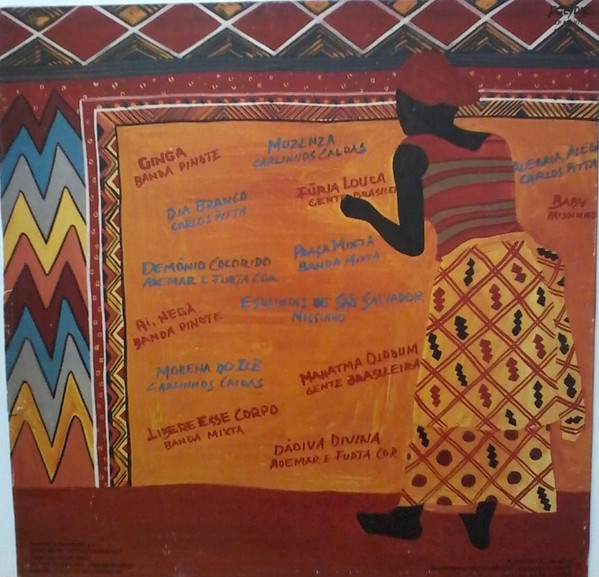 GINGA
BANDA PINOTE
DIA BRANCO
CARLOS PITTA
DEMÔNIO COLORIDO
ADEMAR E FURTA COR
AI, NEGA
BANDA PINOTE
MORENA DO ILÊ
CARLINHOS CALDAS
LIBERE ESSE CORPO
BANDA MIXTA
MUZENZA
CARLINHOS CALDAS
FÚRIA LOUCA
GENTE BRASILEI
PRAÇA MIXTA
BANDA MIXTA
ESQUINAS DE SÃO SALVADOR
MISSINHO
MAHATMA OLODUM
GENTE BRASILEIRA
DÁDIVA DIVINA
ADEMAR E FURTA COR
ALEGRIA, ALEG
CARLOS PITTA
BABY
MISSINHO